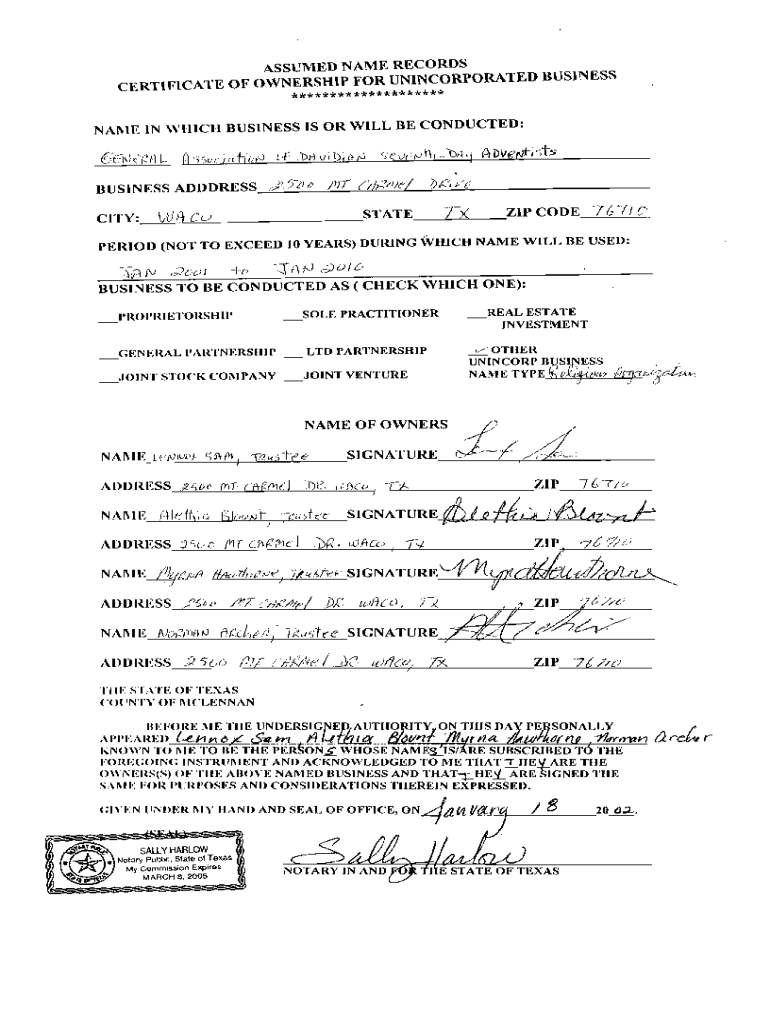 ASSUMED NAME RECORDS
CERTIFICATE OF OWNERSHIP FOR UNINCORPORATED BUSINESS
********************
NAME IN WHICH BUSINESS IS OR WILL BE CONDUCTED:
GENERAL Association of Davidian Seventh-Day Adventists
BUSINESS ADDDRESS 2500 MT CARMEl DRIVE
CITY: WACO STATE TX ZIP CODE 76710
PERIOD (NOT TO EXCEED 10 YEARS) DURING WHICH NAME WILL BE USED:
JAN 2001 to JAN 2010
BUSINESS TO BE CONDUCTED AS ( CHECK WHICH ONE):
___PROPRIETORSHIP ___SOLE PRACTITIONER ___REAL ESTATE
INVESTMENT
___GENERAL PARTNERSHIP ___ LTD PARTNERSHIP ✓ OTHER
UNINCORP BUSINESS
___JOINT STOCK COMPANY ___JOINT VENTURE NAME TYPE Religious Organization
NAME OF OWNERS
NAME LENNOX SAM, Trustee SIGNATURE
ADDRESS 2500 MT CARMEl DR. WACO, TX ZIP 76710
NAME Alethia Blount, Trustee SIGNATURE Alethia Blount
ADDRESS 2500 MT CARMEl DR. WACO, TX ZIP 76710
NAME Myrna Hawthorne, Trustee SIGNATURE Myrna Hawthorne
ADDRESS 2500 MT CARMEl DR WACO, TX ZIP 76710
NAME NORMAN ARCHER, Trustee SIGNATURE
ADDRESS 2500 MT CARMEl DR WACO, TX ZIP 76710
THE STATE OF TEXAS
COUNTY OF MCLENNAN
BEFORE ME THE UNDERSIGNED AUTHORITY, ON THIS DAY PERSONALLY
APPEARED Lennox Sam, Alethia Blount Myrna Hawthorne, Norman Archer
KNOWN TO ME TO BE THE PERSONS WHOSE NAMES IS/ARE SUBSCRIBED TO THE
FOREGOING INSTRUMENT AND ACKNOWLEDGED TO ME THAT THEY ARE THE
OWNERS(S) OF THE ABOVE NAMED BUSINESS AND THAT THEY ARE SIGNED THE
SAME FOR PURPOSES AND CONSIDERATIONS THEREIN EXPRESSED.
GIVEN UNDER MY HAND AND SEAL OF OFFICE, ON January 18 2002.
(SEAL)
SALLY HARLOW
Notary Public, State of Texas
My Commission Expires
MARCH 8, 2005
Sally Harlow
NOTARY IN AND FOR THE STATE OF TEXAS